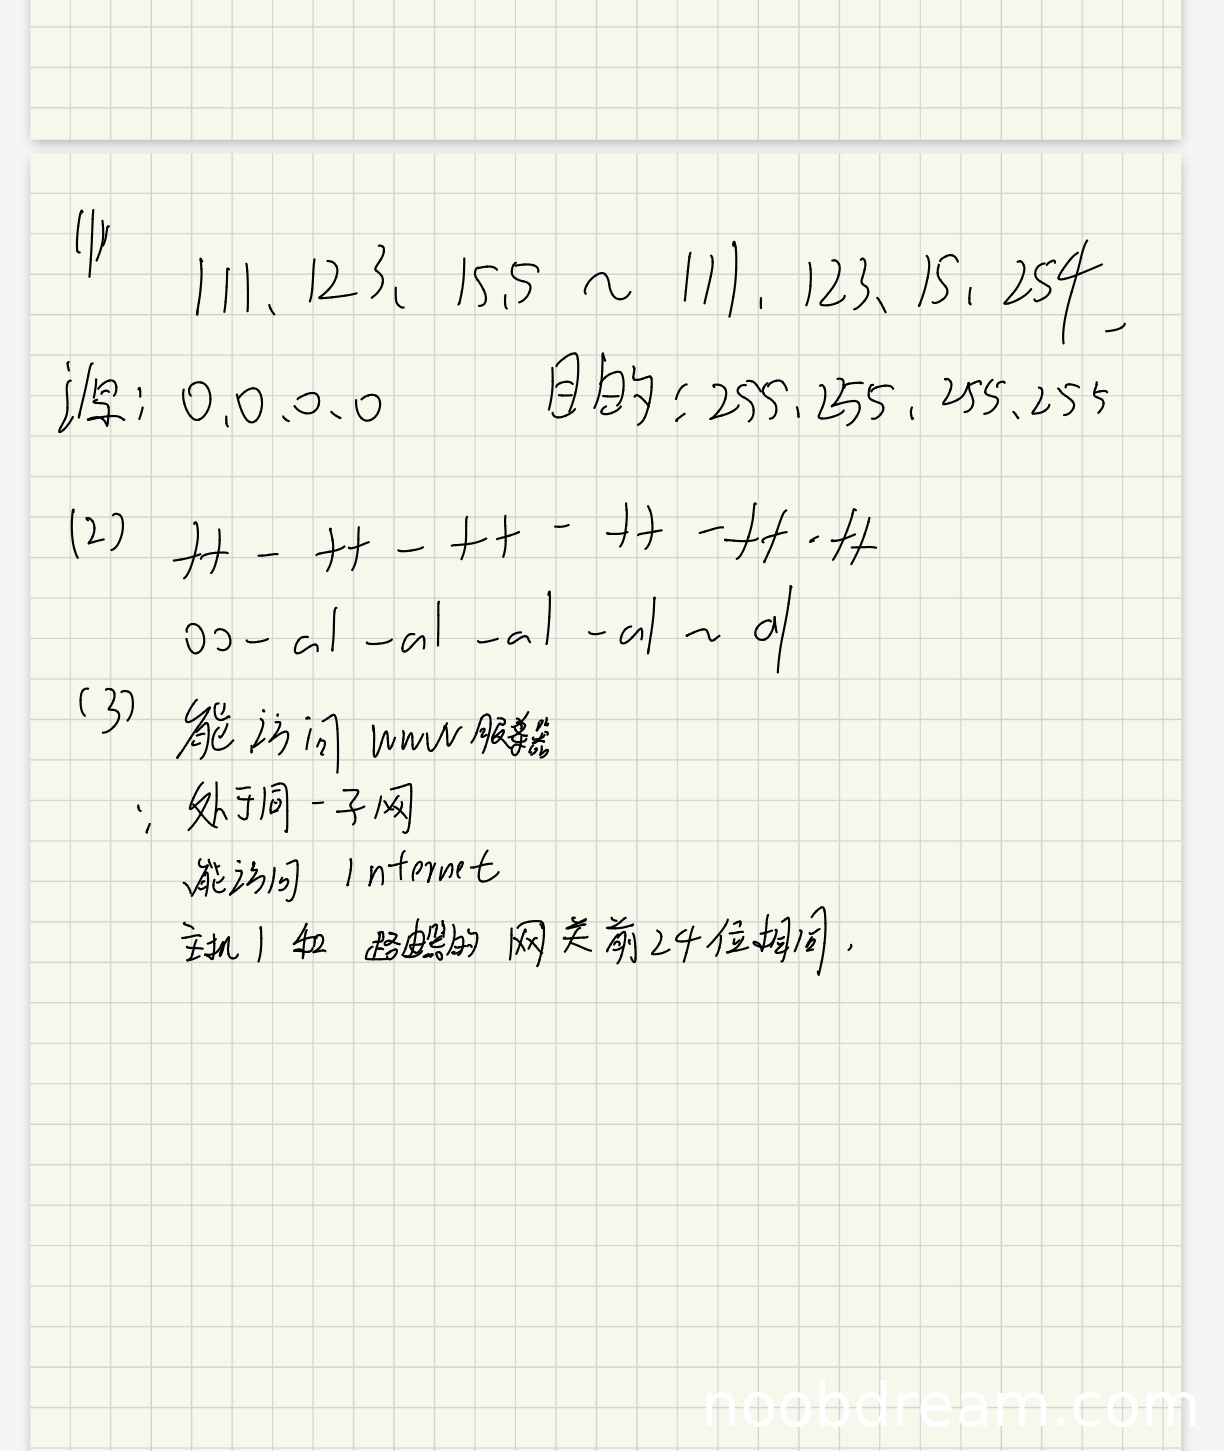 (1)
111.123.15.5 ~ 111.123.15.254.
源: 0.0.0.0 目的: 255.255.255.255
(2) ff - ff - ff - ff - ff - ff
00 - a1 - a1 - a1 - a1 ~ a1
(3) 能访问 WWW 服务器
∵ 处于同一子网
能访问 Internet
主机1和 路由器的 网关前24位相同.
noobdream.com